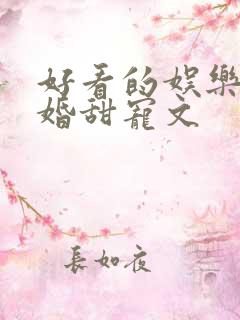 好看的娱樂
婚甜寵文
長如夜